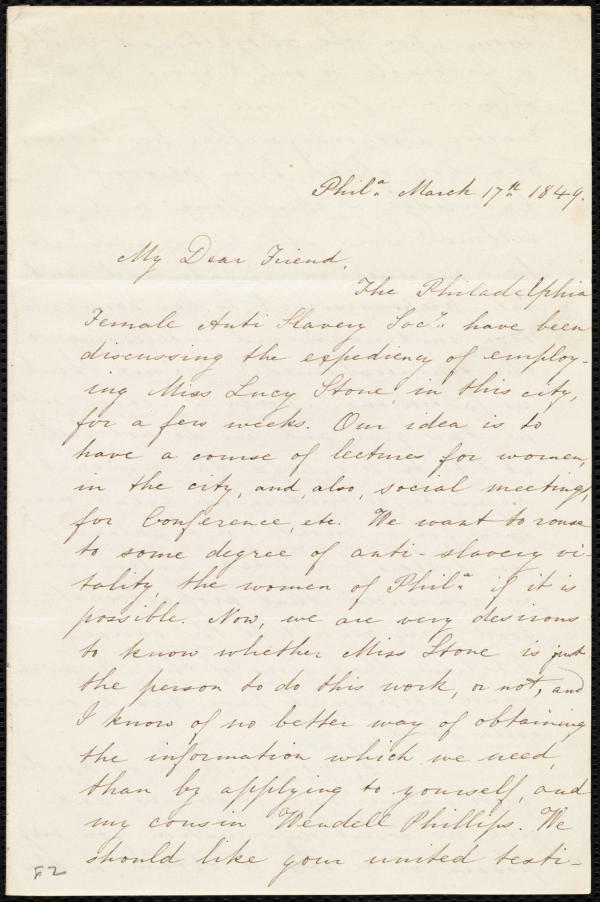 Phil.a March 17th 1849.
My Dear Friend,
The Philadelphia
Female Anti Slavery Soc.y have been
discussing the expediency of employ-
ing Miss Lucy Stone, in this city,
for a few weeks. Our idea is to
have a course of lectures for women,
in the city, and, also, social meetings,
for Conference, etc. We want to rouse
to some degree of anti-slavery vi-
tality, the women of Phil.a if it is
possible. Now, we are very desirous
to know whether Miss Stone is just
the person to do this work, or not, and
I know of no better way of obtaining
the information which we need,
than by applying to yourself, and
my cousin Wendell Phillips. We
should like your united testi-
62